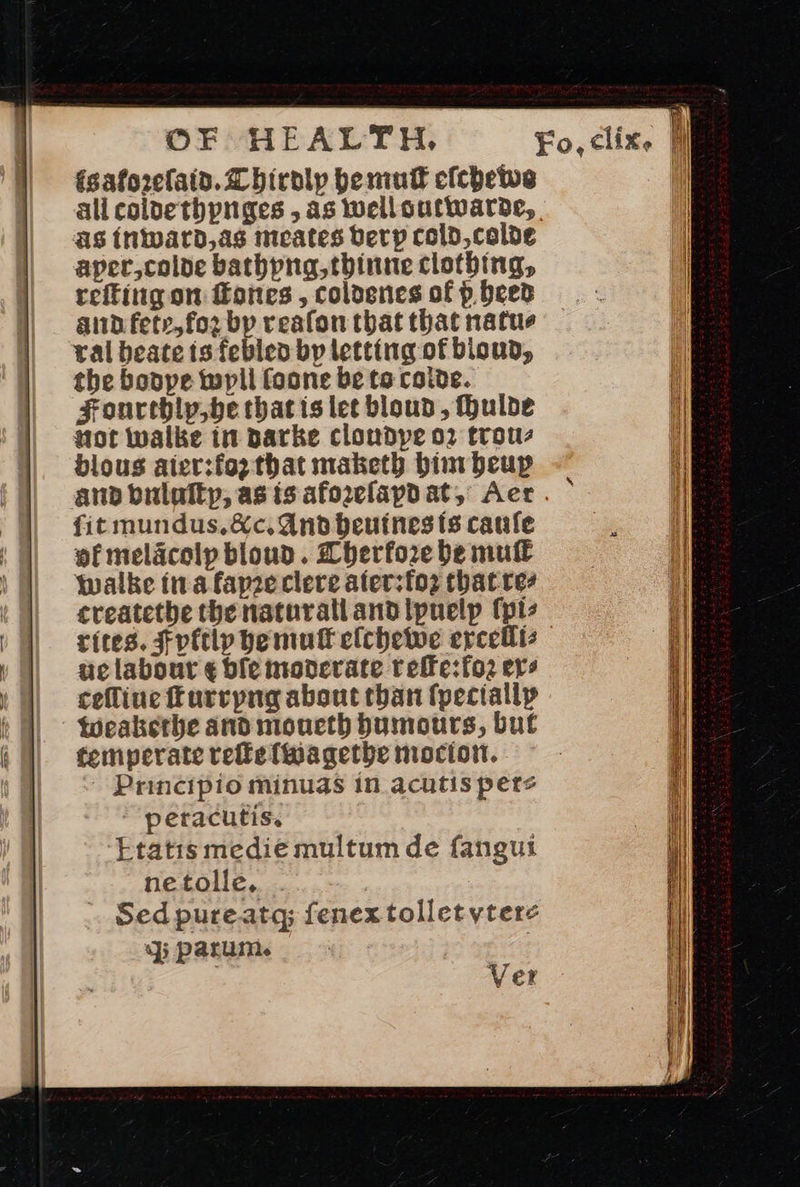 OF HEALTH. Fo. clix.
is aforesaid. Thirdly he must eschewe
all colde thynges, as well outwarde,
as inward, as meates very cold, colde
ayer, colde bathyng, thinne clothing,
resting on stones, coldenes of þͤ heed
and fete, for by reason that that natu-
ral heate is febled by letting of bloud,
the bodye wyll soone be to colde.
Fourthly, he that is let bloud, shulde
not walke in darke cloudye or trou-
blous aier: for that maketh him heuy
and vnlusty, as is aforesayd at, Aer
sit mundus. &c. And heuines is cause
of melācoly bloud. Therfore he must
walke in a fayre clere aier: for that re-
createthe the naturall and lyuely spi-
rites. Fyftly he must eschewe excessi-
ue labour & vse moderate reste: for ex-
cessiue sturryng about than specially
weakethe and moueth humours, but
temperate reste swagethe mocion.
Principio minuas in acutis per-
peracutis.
Etatis medie multum de sangui
ne tolle.
Sed pure atq; senex tollet vter-
q; parum.
Ver